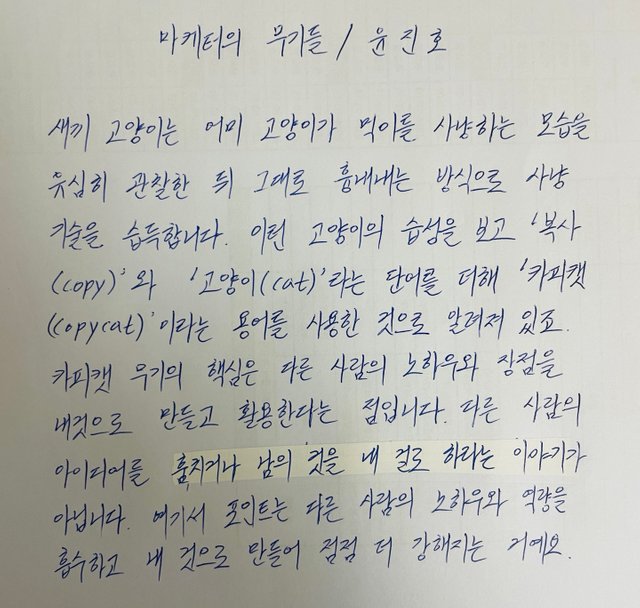 마케터의 무기들 / 윤진호
새끼 고양이는 어미 고양이가 먹이를 사냥하는 모습을
유심히 관찰한 뒤 그대로 흉내내는 방식으로 사냥
기술을 습득합니다. 이런 고양이의 습성을 보고 '복사
(copy)'와 '고양이(cat)'라는 단어를 더해 '카피캣
(copycat)'이라는 용어를 사용한 것으로 알려져 있죠.
카피캣 무기의 핵심은 다른 사람의 노하우와 장점을
내것으로 만들고 활용한다는 점입니다. 다른 사람의
아이디어를 훔치거나 남의 것을 내 걸로 하라는 이야기가
아닙니다. 여기서 포인트는 다른 사람의 노하우와 역량을
흡수하고 내 것으로 만들어 점점 더 강해지는 거예요.